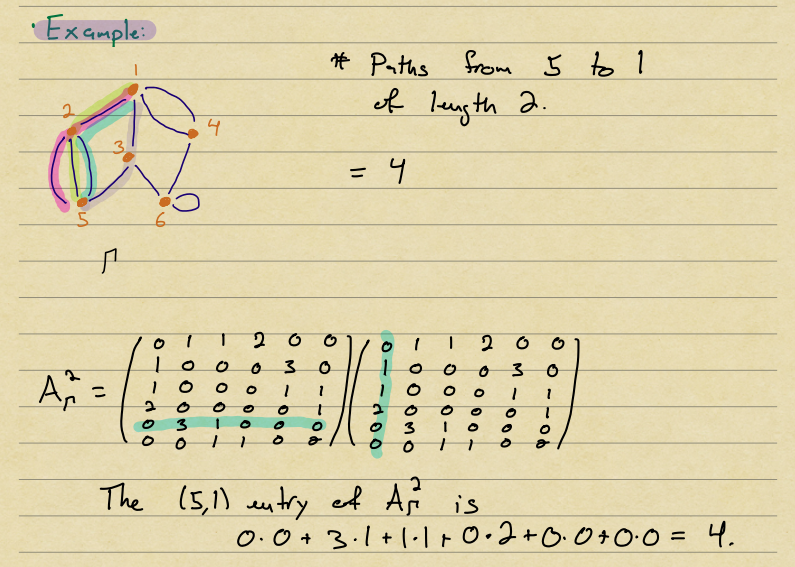 Example:
1
2
3
4
5
6
Γ
# Paths from 5 to 1
of length 2.
= 4
A_Γ^2 = (0 1 1 2 0 0) (0 1 1 2 0 0)
1 0 0 0 3 0 1 0 0 0 3 0
1 0 0 0 1 1 1 0 0 0 1 1
2 0 0 0 0 1 2 0 0 0 0 1
0 3 1 0 0 0 0 3 1 0 0 0
0 0 1 1 0 2 0 0 1 1 0 2
The (5,1) entry of A_Γ^2 is
0·0 + 3·1 + 1·1 + 0·2 + 0·0 + 0·0 = 4.